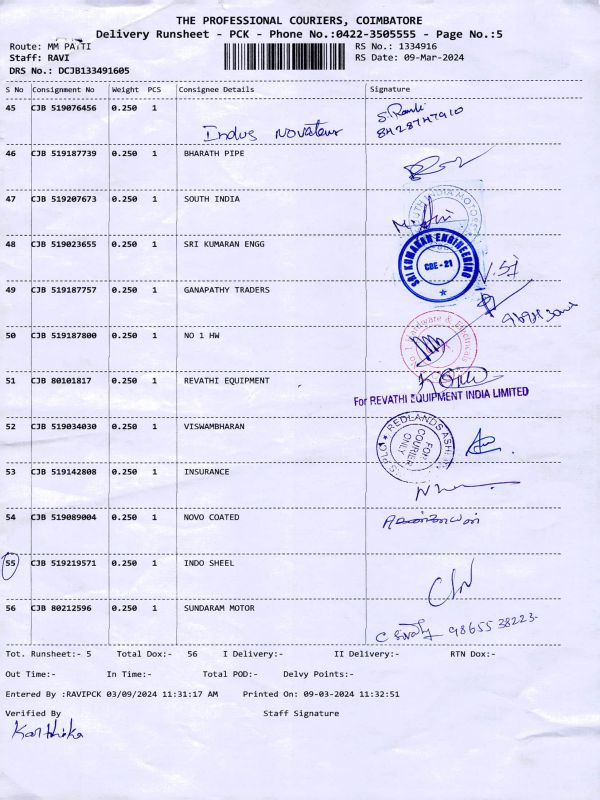 THE PROFESSIONAL COURIERS, COIMBATORE
Delivery Runsheet - PCK - Phone No.:0422-3505555 - Page No.:5
Route: MM PATTI
RS No.: 1334916
Staff: RAVI
RS Date: 09-Mar-2024
DRS No.: DCJB133491605
S No Consignment No Weight PCS Consignee Details Signature
45 CJB 519076456 0.250 1
Indus Novateur
46 CJB 519187739 0.250 1 BHARATH PIPE
47 CJB 519207673 0.250 1 SOUTH INDIA
SOUTH INDIA MOTORS
48 CJB 519023655 0.250 1 SRI KUMARAN ENGG
SRI KUMARAN ENGINEERING
CBE - 21
V.SI
49 CJB 519187757 0.250 1 GANAPATHY TRADERS
50 CJB 519187800 0.250 1 NO 1 HW
No. 1 Hardware & Electricals
51 CJB 80101817 0.250 1 REVATHI EQUIPMENT
For REVATHI EQUIPMENT INDIA LIMITED
52 CJB 519034030 0.250 1 VISWAMBHARAN
REDLANDS ASHLYN
FOR COURIER ONLY
53 CJB 519142808 0.250 1 INSURANCE
54 CJB 519089004 0.250 1 NOVO COATED
55 CJB 519219571 0.250 1 INDO SHEEL
56 CJB 80212596 0.250 1 SUNDARAM MOTOR
9865538223
Tot. Runsheet:- 5 Total Dox:- 56 I Delivery:- II Delivery:- RTN Dox:-
Out Time:- In Time:- Total POD:- Delvy Points:-
Entered By :RAVIPCK 03/09/2024 11:31:17 AM Printed On: 09-03-2024 11:32:51
Verified By Staff Signature
Karthika